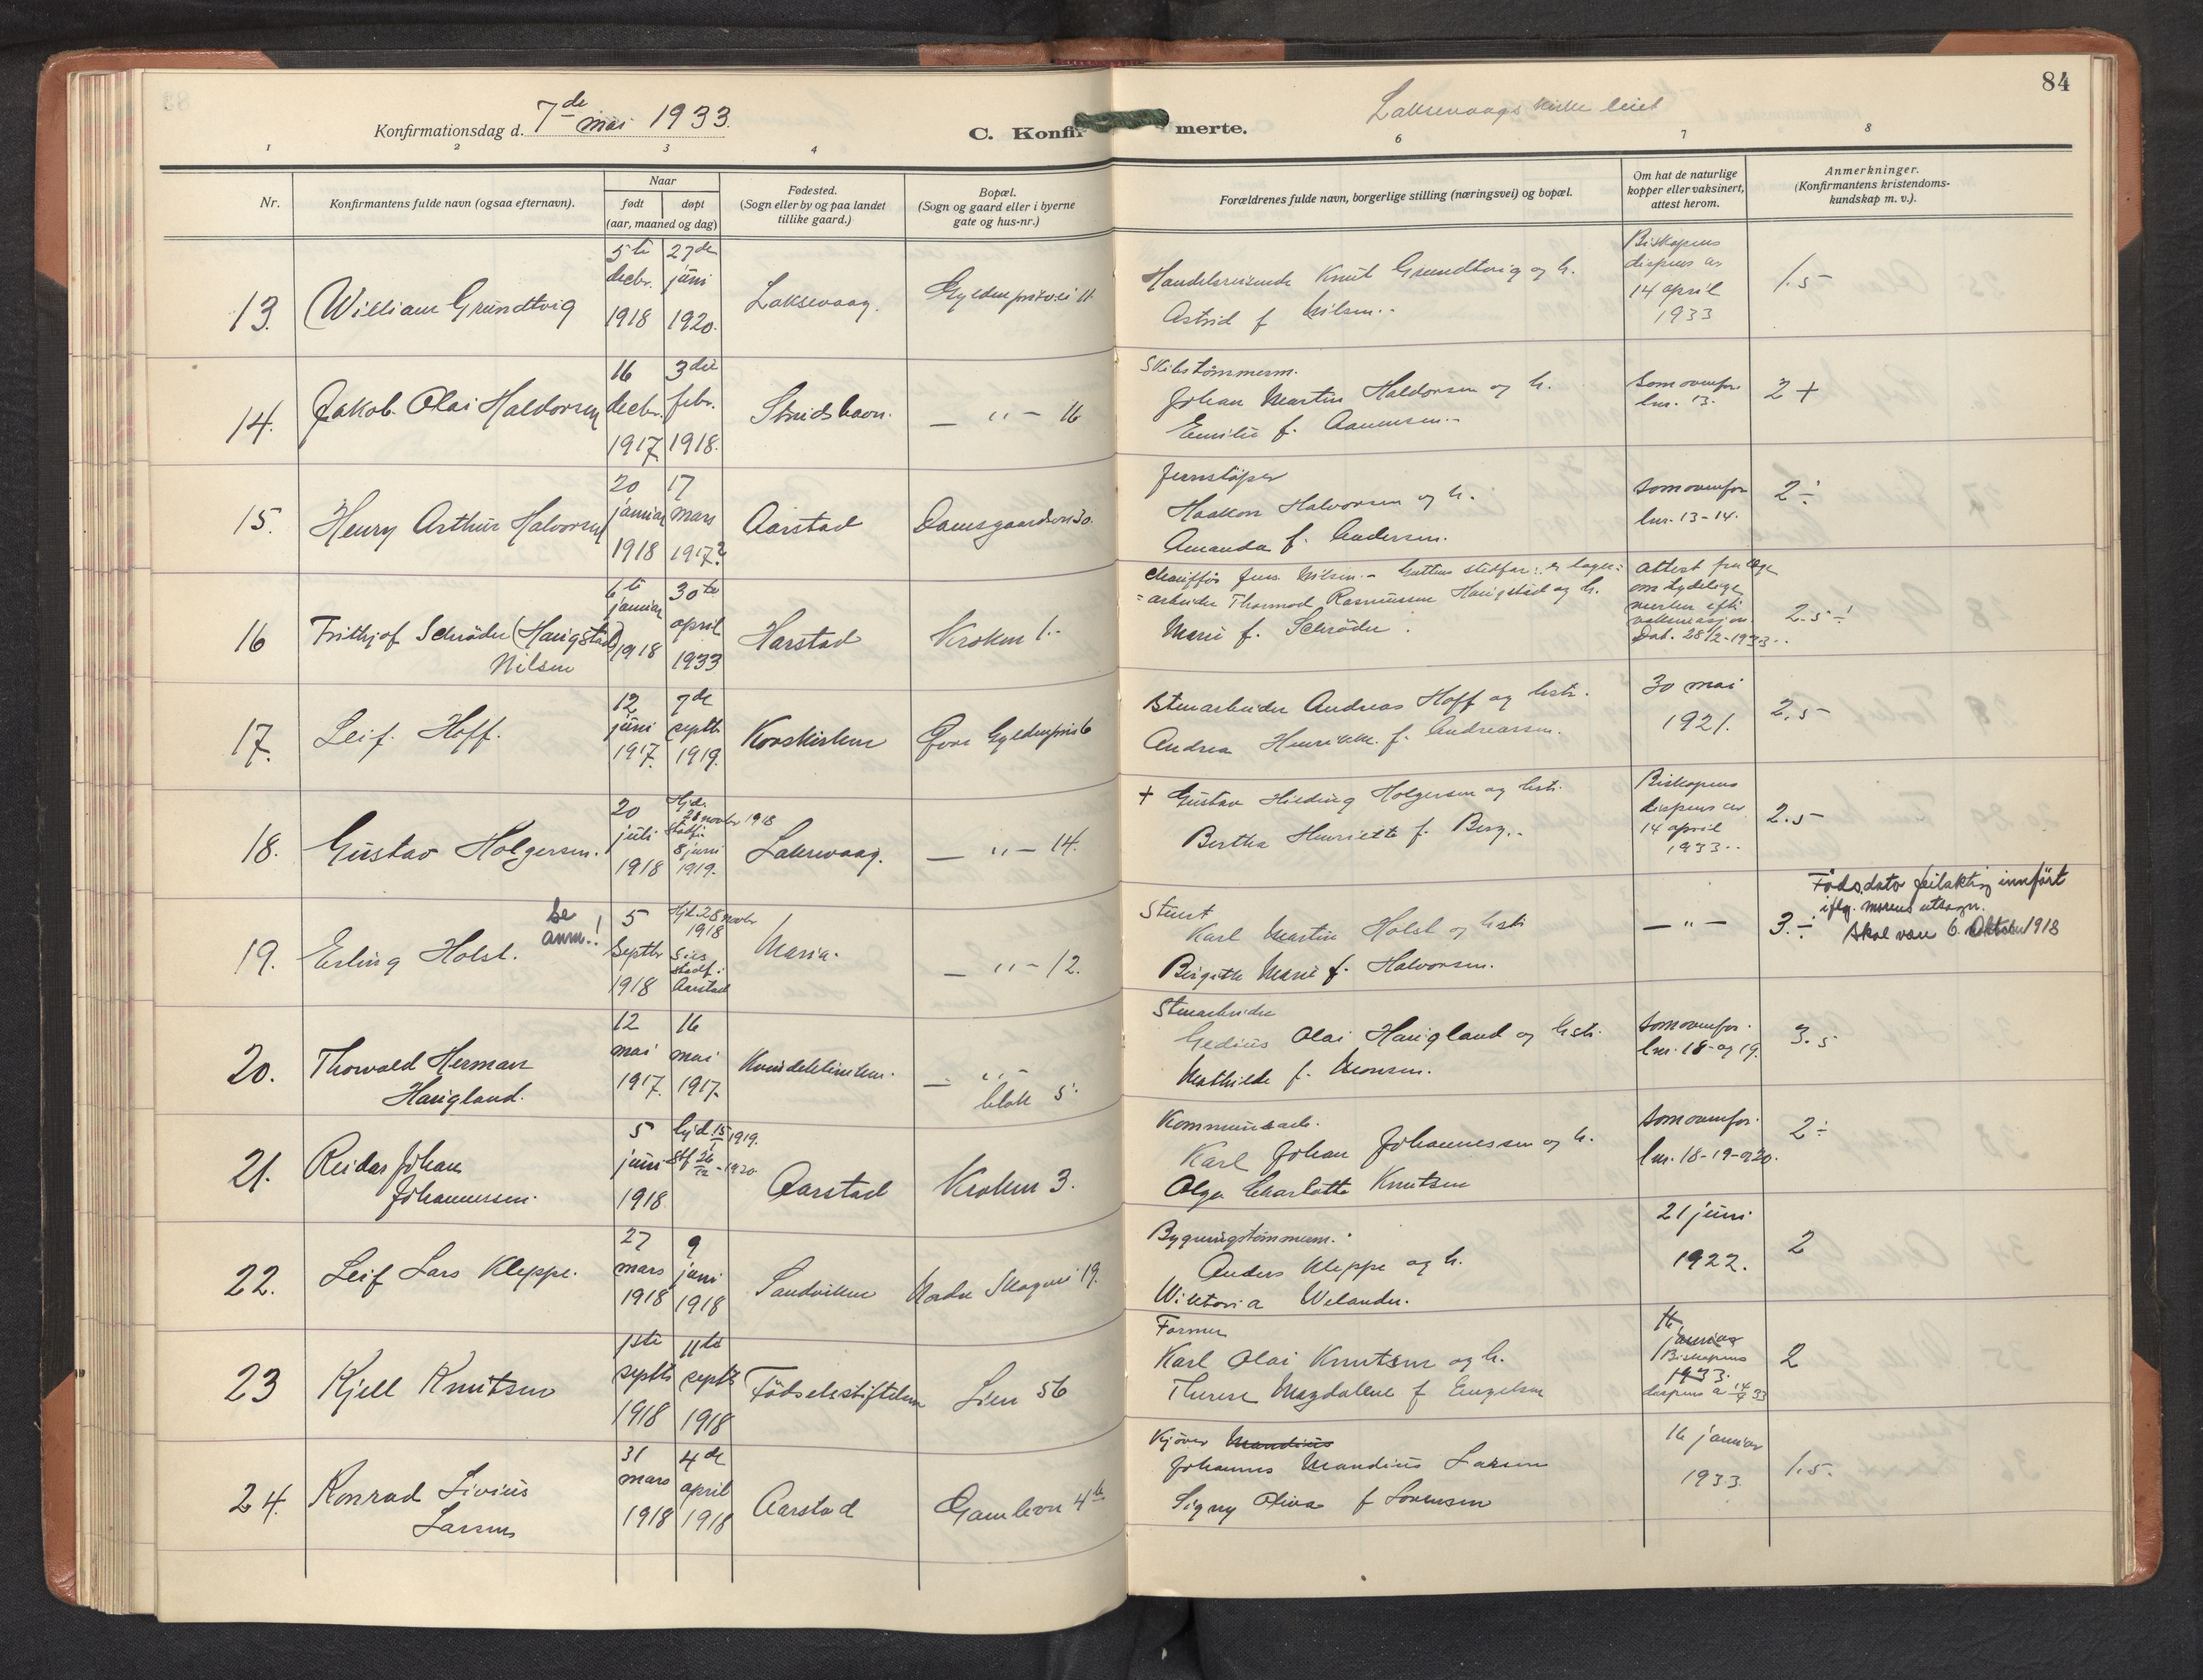 84
Konfirmationsdag d. 7de mai 1933.
C. Konfirmerte.
Laksevaags kirke leiet
1 2 3 4 6 7 8
Nr.
Konfirmantens fulde navn (ogsaa efternavn).
Naar
født
døpt
(aar, maaned og dag)
Fødested.
(Sogn eller by og paa landet
tillike gaard.)
Bopæl.
(Sogn og gaard eller i byerne
gate og hus-nr.)
Forældrenes fulde navn, borgerlige stilling (næringsvei) og bopæl.
Om hat de naturlige
kopper eller vaksinert,
attest herom.
Anmerkninger.
(Konfirmantens kristendoms-
kundskap m. v.).
13. William Grundtvig
5te decbr. 1918
27de juni 1920.
Laksevaag.
Gyldenprisvei 11.
Handelsreisende Knut Grundtvig og h.
Astrid f Nilsen.
Biskopens
dispens av
14 april
1933
1.5
14. Jakob Olai Haldorsen
16 decbr. 1917
3die febr. 1918.
Strudshavn.
— " — 16
Skibstømmerm.
Johan Martin Haldorsen og h.
Emilie f. Aamensen.
som ovenfor
lnr. 13.
2 +
15. Henry Arthur Halvorsen
20 januar 1918
17 mars 1917?
Aarstad
Damsgaardsvn 30.
Jernstøper
Haakon Halvorsen og h.
Amanda f. Andersen.
som ovenfor
lnr. 13-14.
2 ÷
16 Frithjof Schrøder (Haugstad)
Nilsen
6te januar 1918
30te april 1933
Harstad
Kroken 1.
Chauffør Jens Nilsen. - Guttens stedfar: er lager=
=arbeider Thormod Rasmussen Haugstad og h.
Marie f. Schrøder.
attest fra læge
om tydelige
merker efter
vaksinasjon.
Dat. 28/2-1933.
2.5 ÷
17. Leif Hoff.
12 juni 1917.
7de septb. 1919.
Korskirken
Øvre Gyldenpris 6
Stenarbeider Andreas Hoff og hstr.
Andrea Henrikke f. Andreassen.
30 mai
1921.
2.5
18. Gustav Holgersen.
20 juli 1918
Hjd. 28 novbr 1918
stadf. 8 juni 1919.
Laksevaag.
— " — 14.
+ Gustav Hilding Holgersen og hstr.
Bertha Henriette f. Berg.
Biskopens
dispens av
14 april
1933.
2.5
19. Erling Holst.
Se anm.!
5 Septbr 1918
Hjd. 28 novbr 1918
stadf. i Aarstad
Maria.
— " — 12.
Karl Martin Holst og hstr
Birgitte Marie f. Halvorsen.
— " —
3. ÷
Fødsdato feilaktig innført
iflg. morens utsagn.
Skal være 6. Oktober 1918
20. Thorvald Herman
Haugland.
12 mai 1917.
16 mai 1917.
Kvindeklinikken.
— " —
blok 5.
Stenarbeider
Gedius Olai Haugland og hstr.
Mathilde f. Monsen.
som ovenfor.
lnr. 18- og 19.
3.5
21. Reidar Johan
Johannessen.
5 juni 1918
hjd 15/1 1919.
Stf 26/12 - 1920.
Aarstad
Kroken 3.
Kommunearb.
Karl Johan Johannessen og h.
Olga Charlotte Knutsen
som ovenfor.
lnr. 18-19-og 20.
2 ÷
22. Leif Lars Kleppe.
27 mars 1918
9 juni 1918
Sandviken
Nordre Skogvei 19.
Bygningstømmerm.
Anders Kleppe og h.
Wiktoria Welander.
21 juni
1922.
2
23 Kjell Knutsen
1ste septb 1918
11te septb 1918
Fødselsstiftelsen
Lien 56
Former
Karl Olai Knutsen og h.
Therese Magdalene f Engelsen
16
januar
Biskopens
1933.
dispens a 14/4 33
2
24. Konrad Livius
Larsen
31 mars 1918
4de april 1918
Aarstad
Gamlevn 4b
Kjører Mandius
Johannes Mandius Larsen
Signy Oliva f Sørensen
16 januar
1933.
1.5.